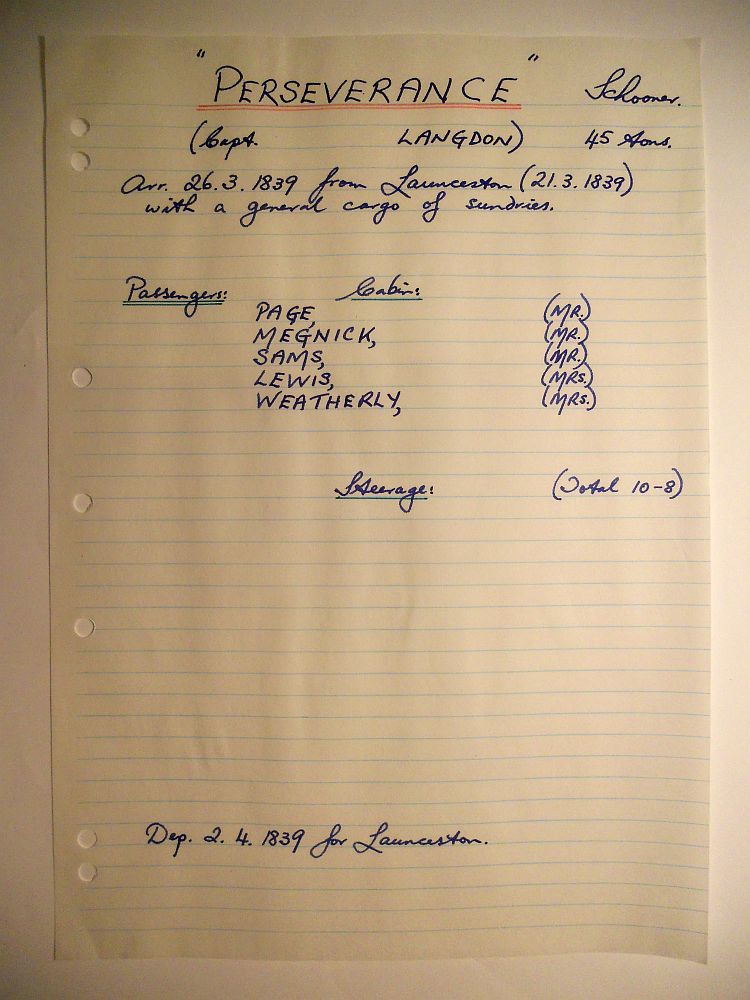 "PERSEVERANCE" Schooner.
(Capt. LANGDON) 45 tons.
Arr. 26.3.1839 from Launceston (21.3.1839)
with a general cargo of sundries.
Passengers: Cabin:
PAGE, (MR.)
MEGNICK, (MR.)
SAMS, (MR.)
LEWIS, (MRS.)
WEATHERLY, (MRS.)
Steerage: (Total 10-8)
Dep. 2.4.1839 for Launceston.